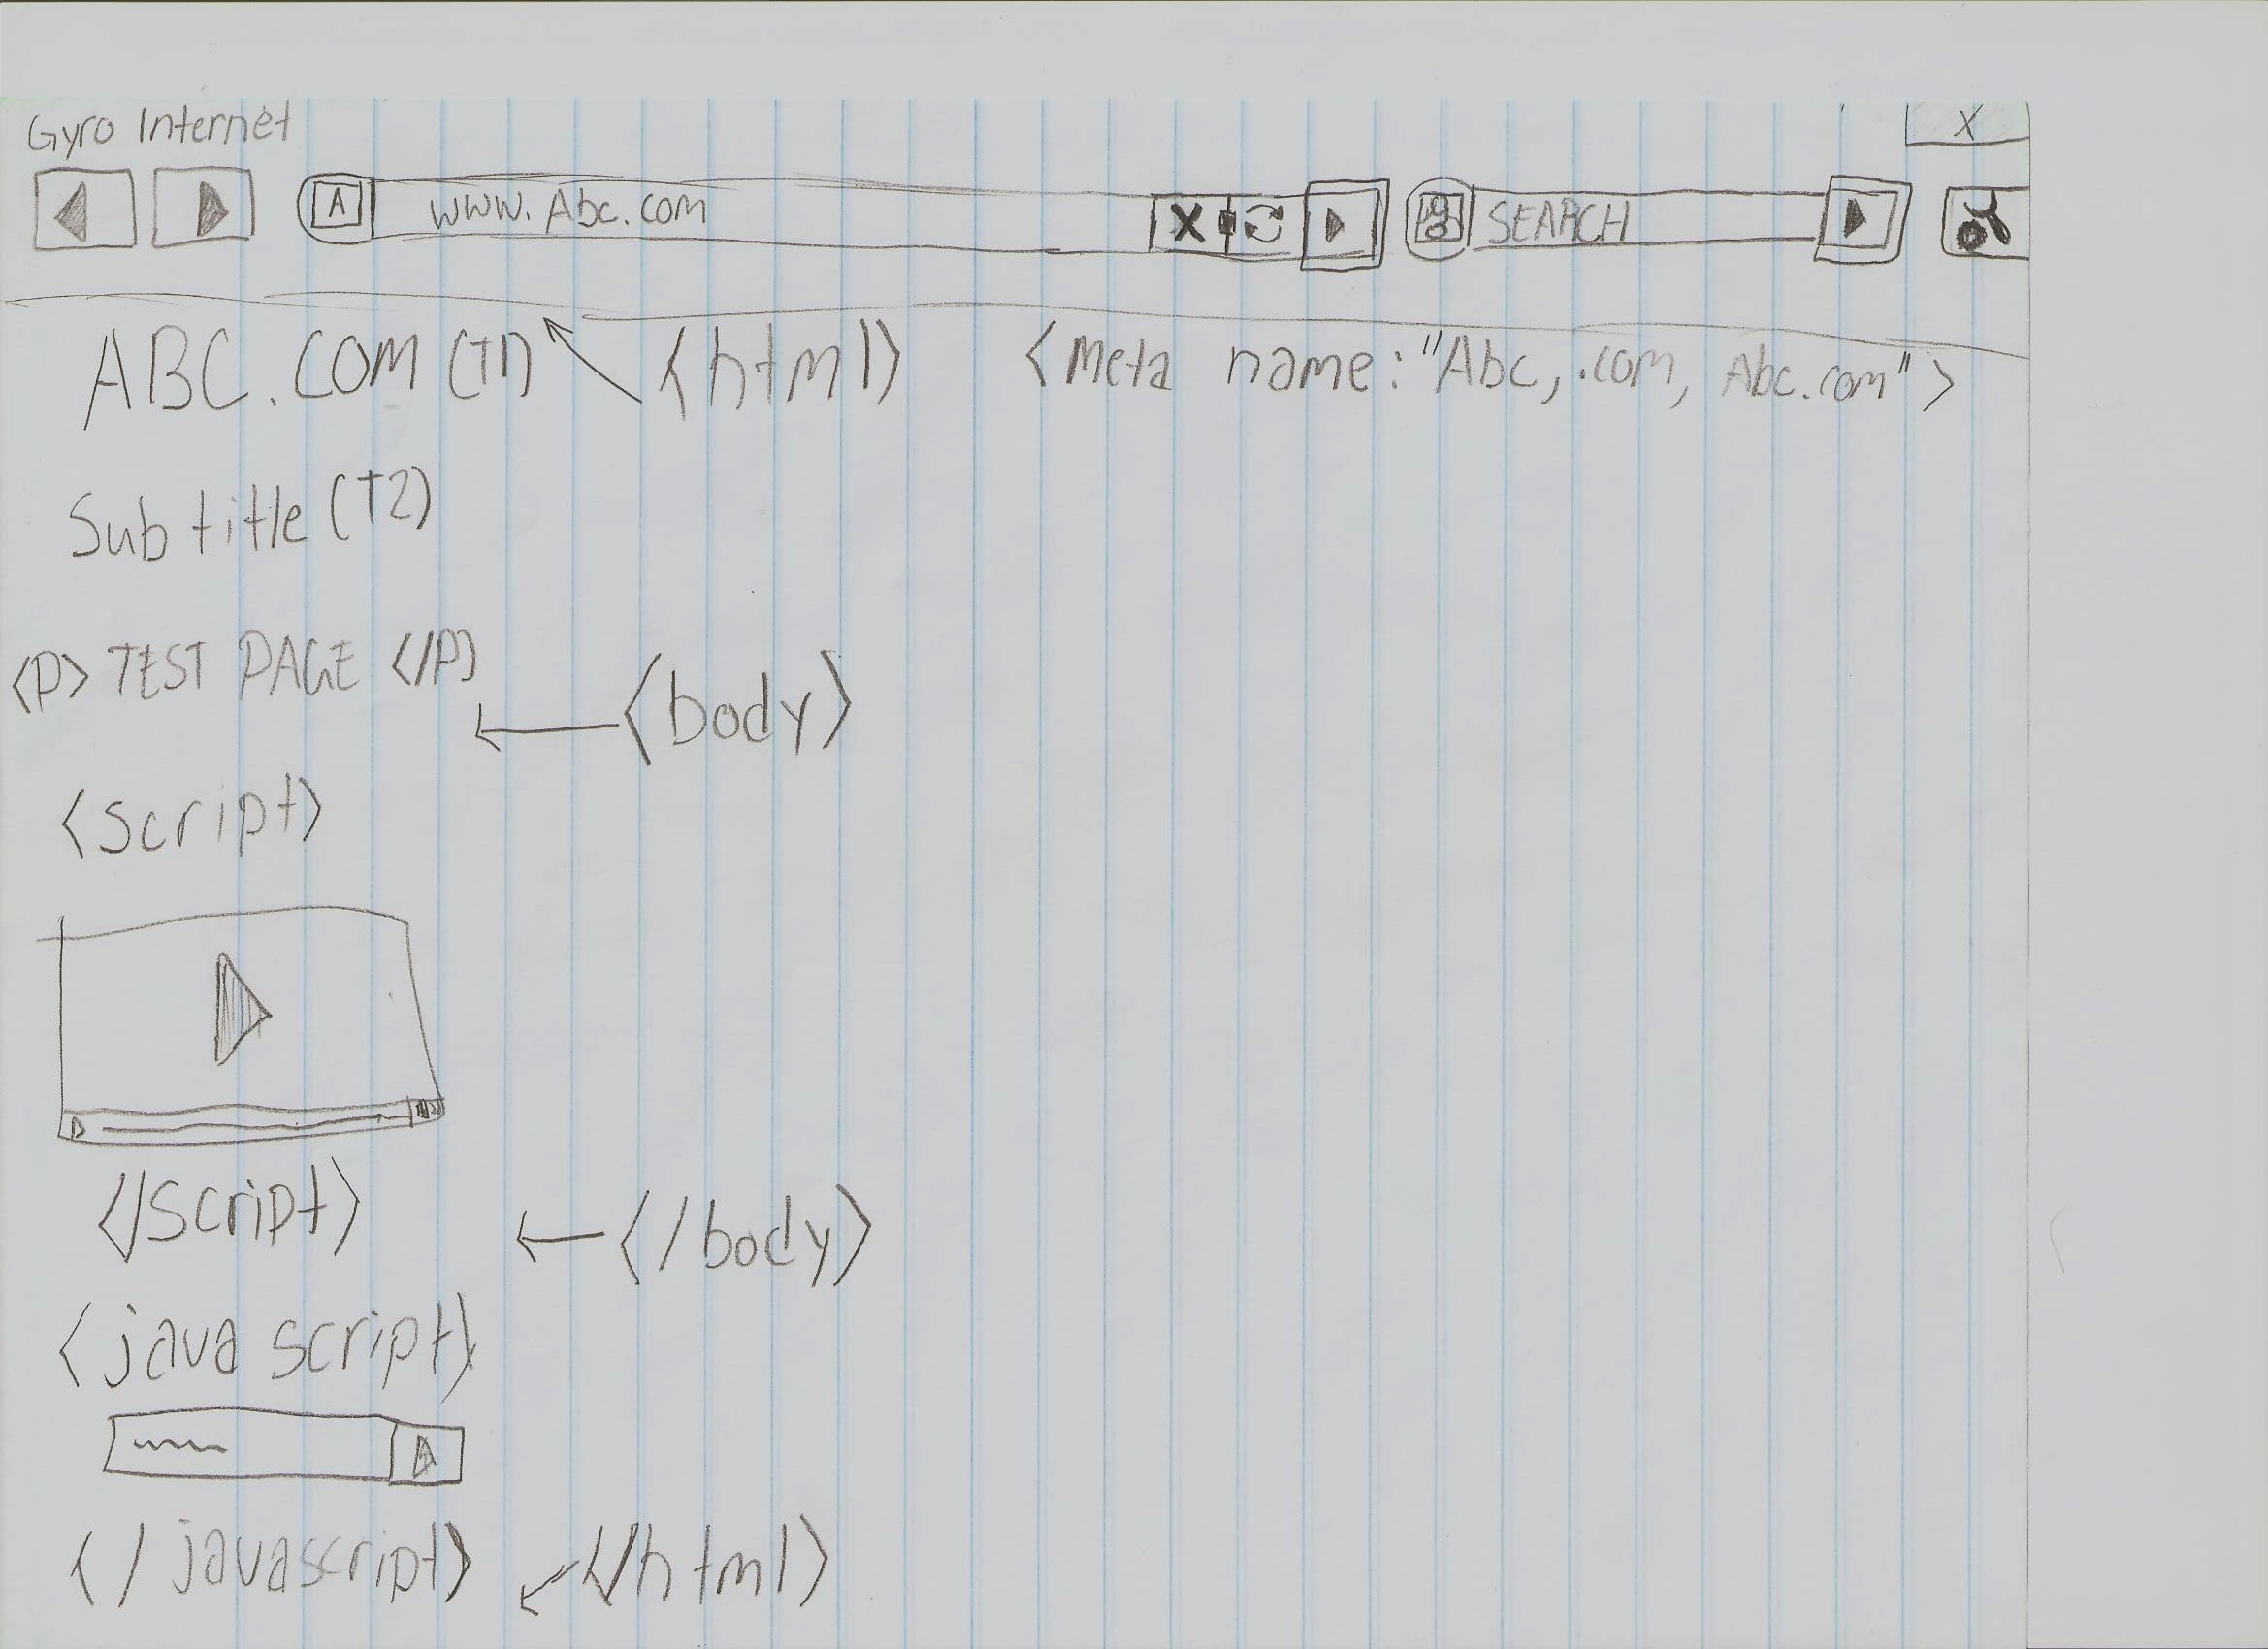 Gyro Internet
X
A www.Abc.com X SEARCH
ABC.COM (T1) <html> <meta name:"Abc, .com, Abc.com">
Subtitle (T2)
<P> TEST PAGE </P>
<body>
<script>
</script>
</body>
<java script>
</javascript>
</html>